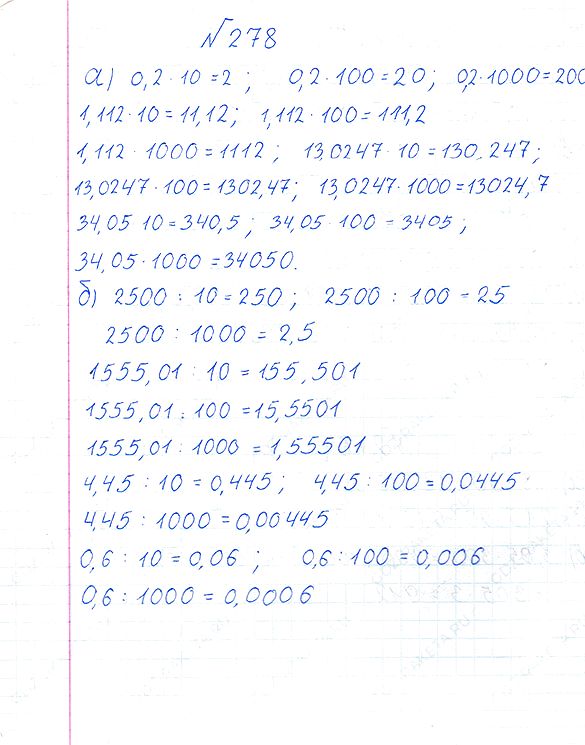 № 278
а) 0,2 · 10 = 2 ; 0,2 · 100 = 20 ; 0,2 · 1000 = 200
1,112 · 10 = 11,12 ; 1,112 · 100 = 111,2
1,112 · 1000 = 1112 ; 13,0247 · 10 = 130,247 ;
13,0247 · 100 = 1302,47 ; 13,0247 · 1000 = 13024,7
34,05 10 = 340,5 ; 34,05 · 100 = 3405 ;
34,05 · 1000 = 34050.
б) 2500 : 10 = 250 ; 2500 : 100 = 25
2500 : 1000 = 2,5
1555,01 : 10 = 155,501
1555,01 : 100 = 15,5501
1555,01 : 1000 = 1,55501
4,45 : 10 = 0,445 ; 4,45 : 100 = 0,0445
4,45 : 1000 = 0,00445
0,6 : 10 = 0,06 ; 0,6 : 100 = 0,006
0,6 : 1000 = 0,0006